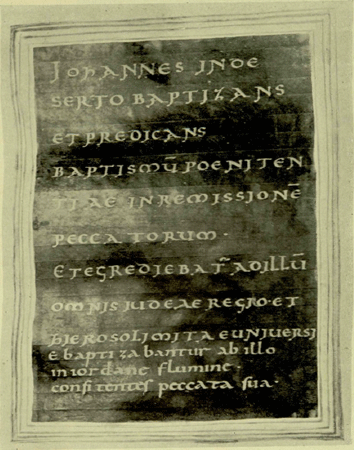 IOHANNES INDE
SERTO BAPTIZANS
ET PREDICANS
BAPTISMŪ POENITEN
TIAE IN REMISSIONĒ
PECCATORUM ·
ET EGREDIEBAT̄ AD ILLŪ
OMNIS IUDEAE REGIO · ET
HIEROSOLIMITAE UNIVERSI
E baptizabantur ab illo
in iordane flumine ·
confitentes peccata sua ·